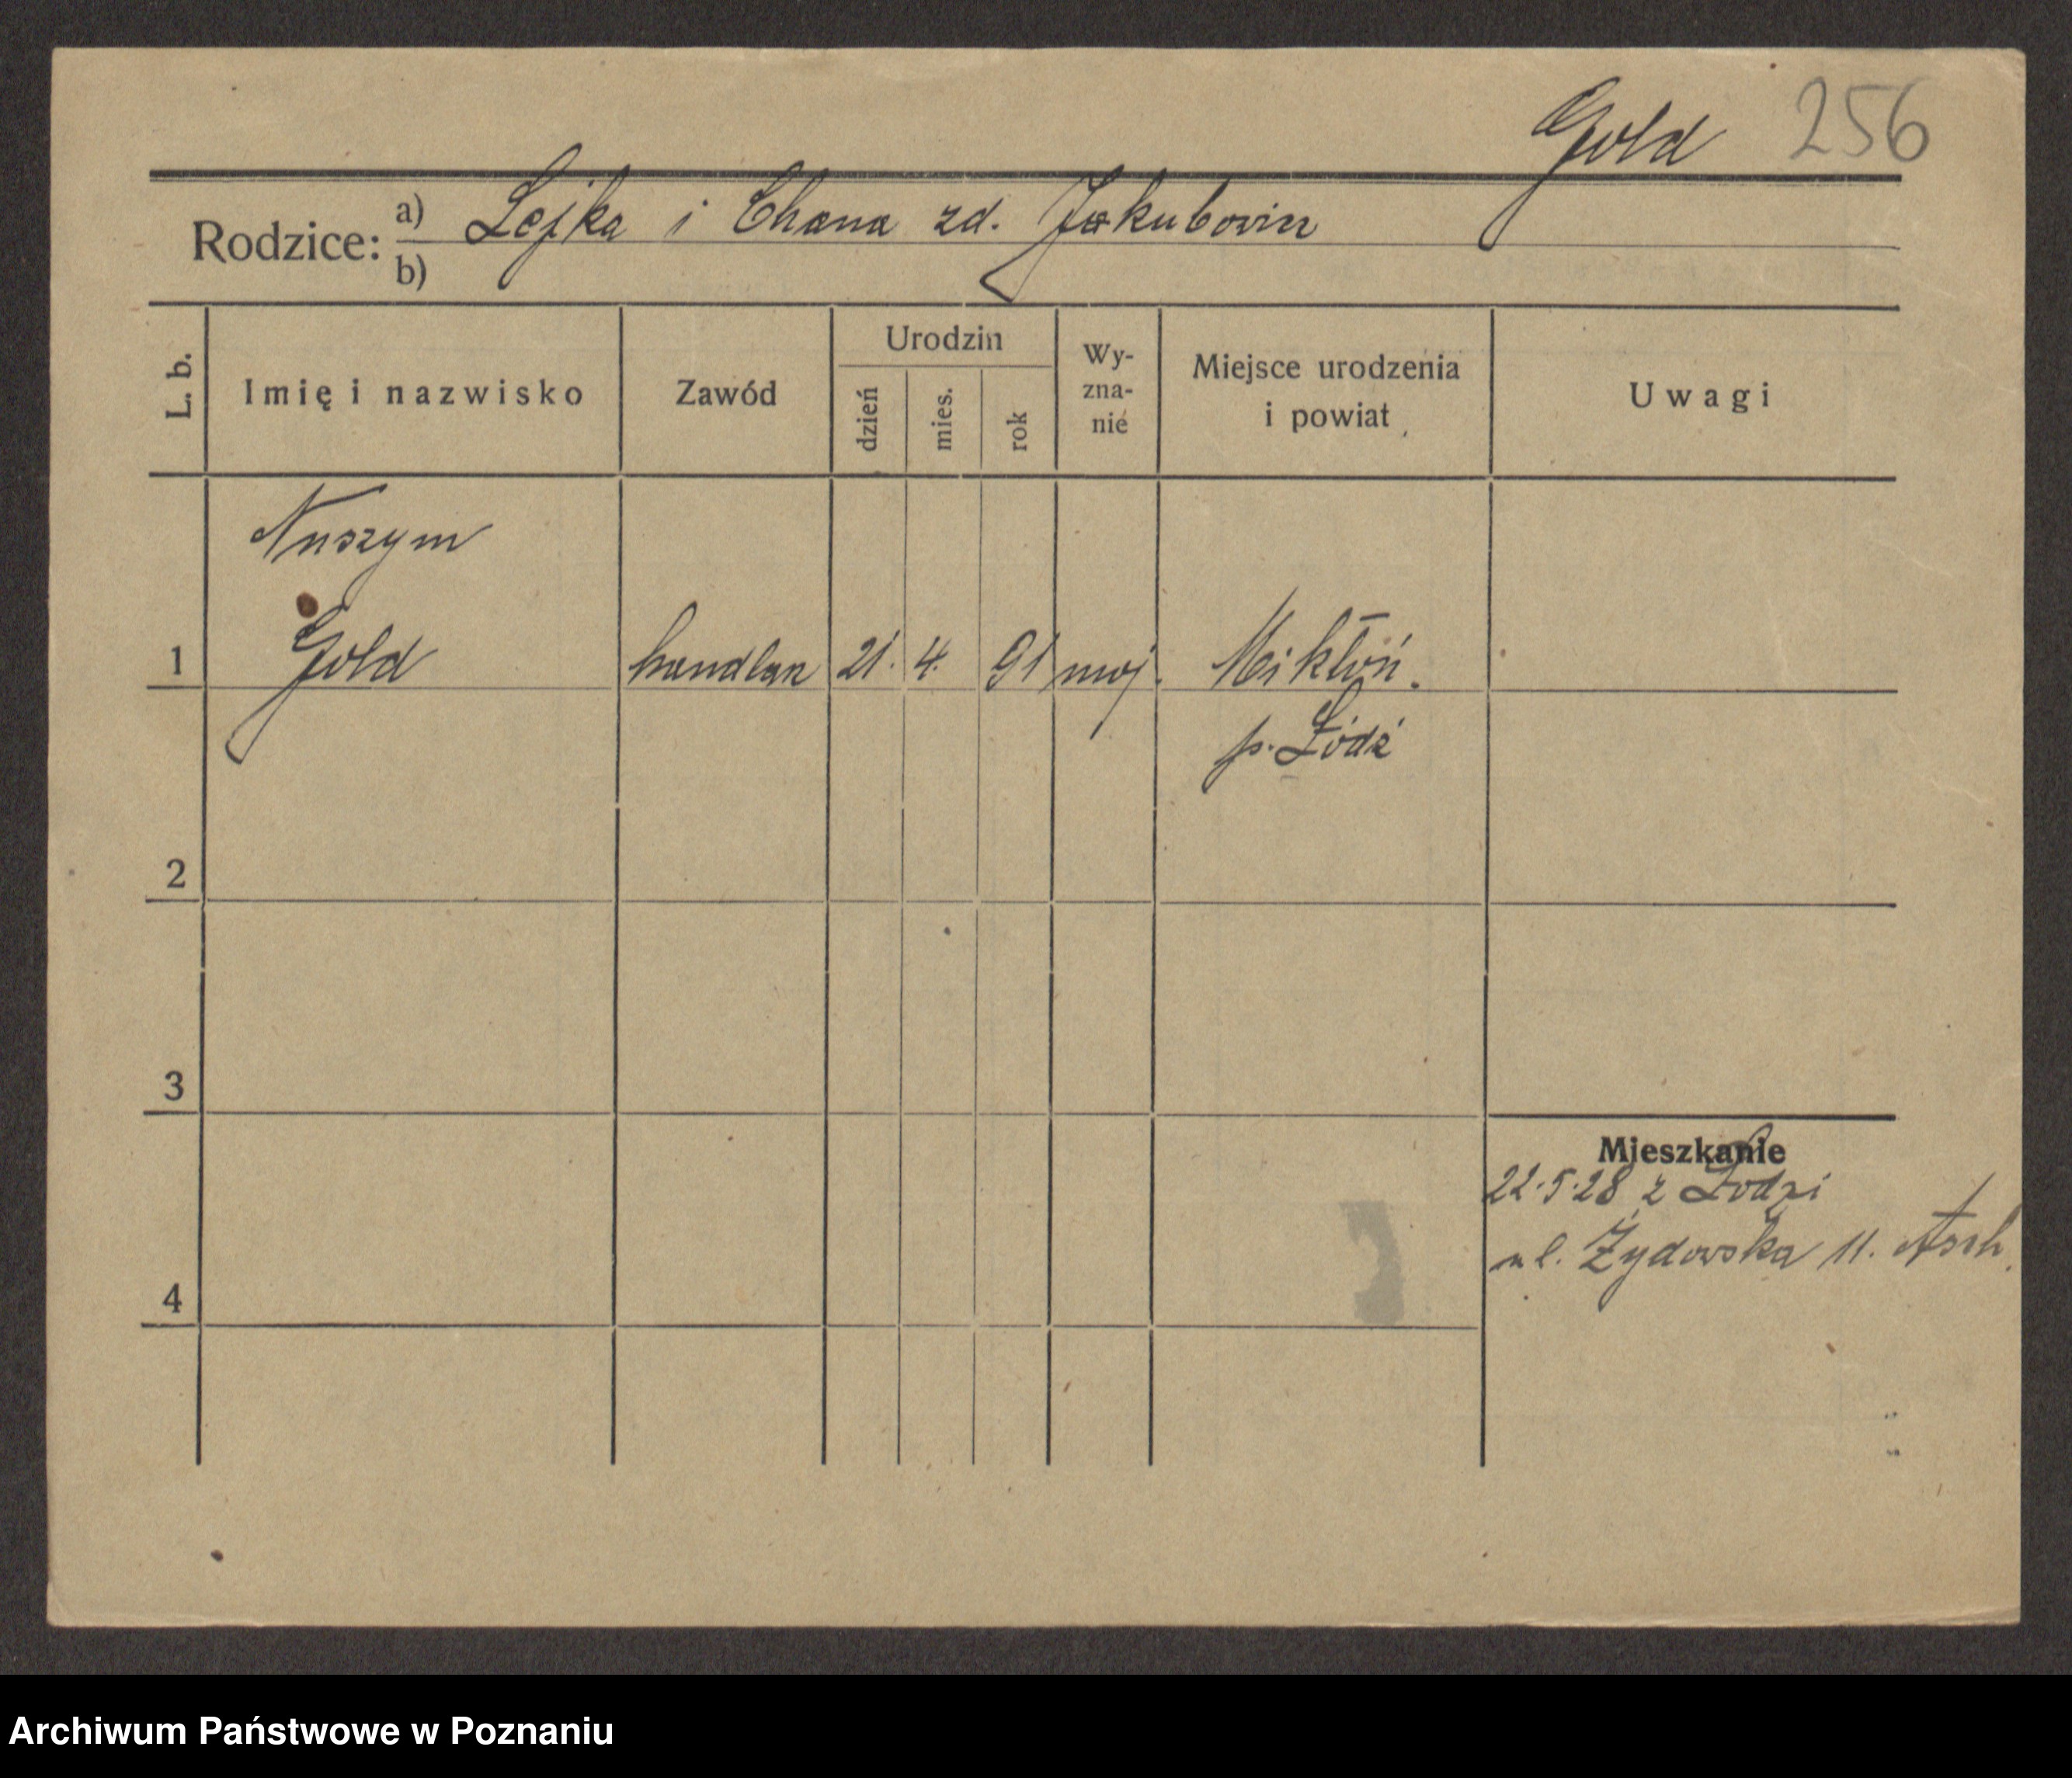 Gold 256
Rodzice: a) Lejka i Chana zd. Jakubowicz
b)
L. b.
Imię i nazwisko
Zawód
Urodzin
dzień
mies.
rok
Wy-
zna-
nie
Miejsce urodzenia
i powiat
Uwagi
Nuszym
1 Gold handlarz 21. 4. 91 moj.
p. Łódź
2
3
Mieszkanie
22.5.28 z Łodzi
ul. Żydowska 11. Asch.
4
Archiwum Państwowe w Poznaniu